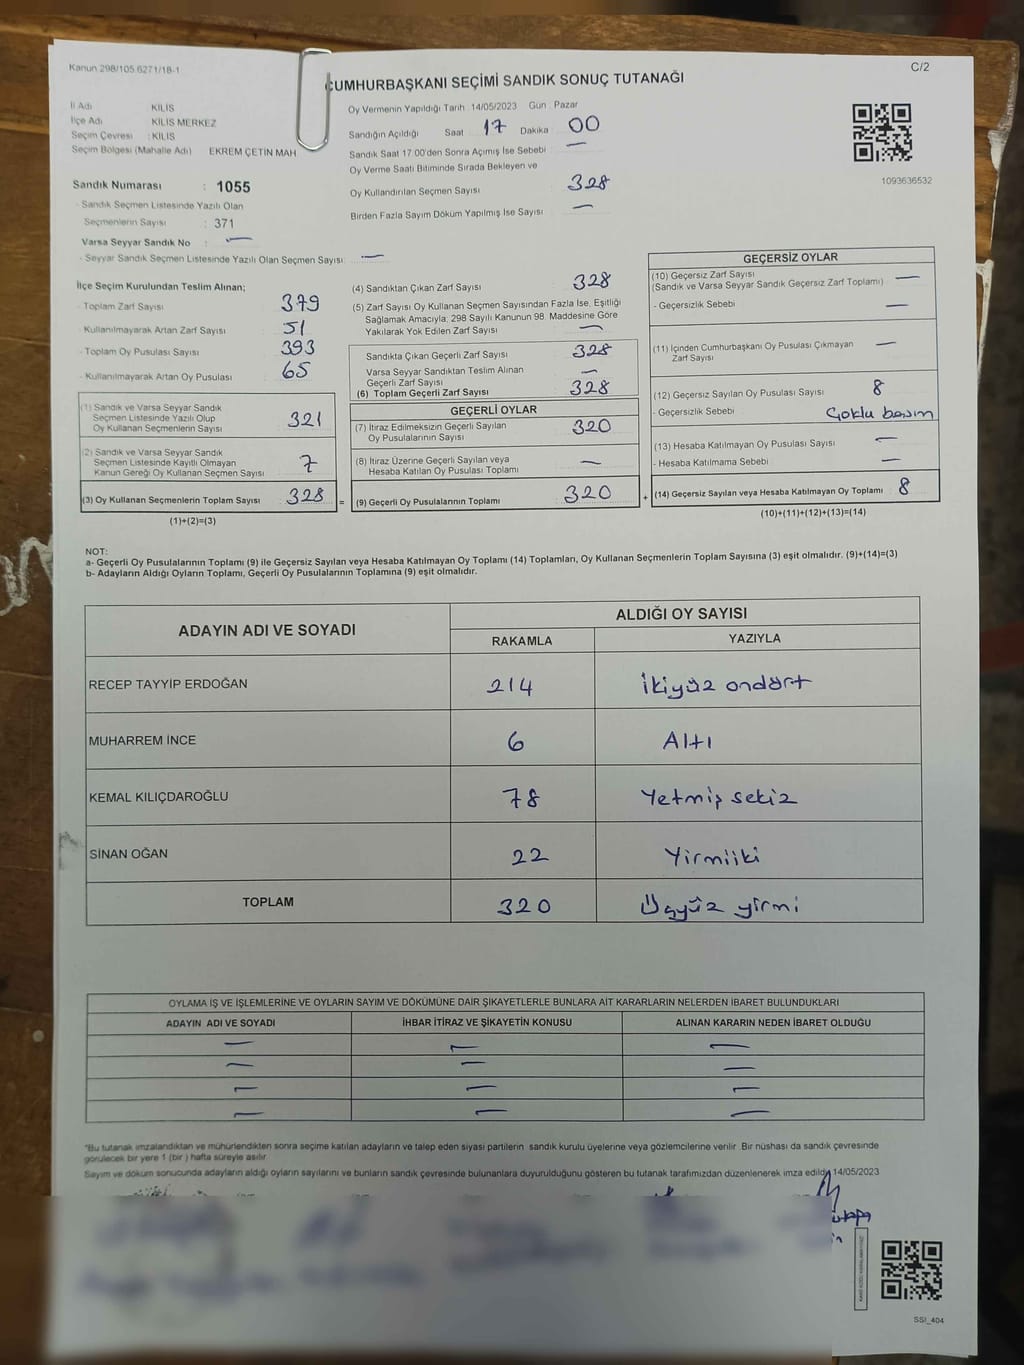 Kanun 298/105.6271/18-1
C/2
CUMHURBAŞKANI SEÇİMİ SANDIK SONUÇ TUTANAĞI
İl Adı KİLİS
İlçe Adı KİLİS MERKEZ
Seçim Çevresi : KİLİS
Seçim Bölgesi (Mahalle Adı) EKREM ÇETİN MAH
Sandık Numarası : 1055
- Sandık Seçmen Listesinde Yazılı Olan
Seçmenlerin Sayısı : 371
Varsa Seyyar Sandık No : —
- Seyyar Sandık Seçmen Listesinde Yazılı Olan Seçmen Sayısı: —
Oy Vermenin Yapıldığı Tarih 14/05/2023 Gün : Pazar
Sandığın Açıldığı Saat 17 Dakika 00
Sandık Saat 17:00'den Sonra Açımış İse Sebebi —
Oy Verme Saati Bitiminde Sırada Bekleyen ve
Oy Kullandırılan Seçmen Sayısı 328
Birden Fazla Sayım Döküm Yapılmış İse Sayısı —
1093636532
İlçe Seçim Kurulundan Teslim Alınan;
- Toplam Zarf Sayısı 379
- Kullanılmayarak Artan Zarf Sayısı 51
- Toplam Oy Pusulası Sayısı 393
- Kullanılmayarak Artan Oy Pusulası 65
(1) Sandık ve Varsa Seyyar Sandık
Seçmen Listesinde Yazılı Olup
Oy Kullanan Seçmenlerin Sayısı 321
(2) Sandık ve Varsa Seyyar Sandık
Seçmen Listesinde Kayıtlı Olmayan
Kanun Gereği Oy Kullanan Seçmen Sayısı 7
(3) Oy Kullanan Seçmenlerin Toplam Sayısı 328 =
(1)+(2)=(3)
(4) Sandıktan Çıkan Zarf Sayısı 328
(5) Zarf Sayısı Oy Kullanan Seçmen Sayısından Fazla İse, Eşitliği
Sağlamak Amacıyla; 298 Sayılı Kanunun 98. Maddesine Göre
Yakılarak Yok Edilen Zarf Sayısı —
Sandıkta Çıkan Geçerli Zarf Sayısı 328
Varsa Seyyar Sandıktan Teslim Alınan
Geçerli Zarf Sayısı —
(6) Toplam Geçerli Zarf Sayısı 328
GEÇERLİ OYLAR
(7) İtiraz Edilmeksizin Geçerli Sayılan
Oy Pusulalarının Sayısı 320
(8) İtiraz Üzerine Geçerli Sayılan veya
Hesaba Katılan Oy Pusulası Toplamı —
(9) Geçerli Oy Pusulalarının Toplamı 320 +
GEÇERSİZ OYLAR
(10) Geçersiz Zarf Sayısı
(Sandık ve Varsa Seyyar Sandık Geçersiz Zarf Toplamı) —
- Geçersizlik Sebebi —
(11) İçinden Cumhurbaşkanı Oy Pusulası Çıkmayan
Zarf Sayısı —
(12) Geçersiz Sayılan Oy Pusulası Sayısı 8
- Geçersizlik Sebebi Çoklu basım
(13) Hesaba Katılmayan Oy Pusulası Sayısı —
- Hesaba Katılmama Sebebi —
(14) Geçersiz Sayılan veya Hesaba Katılmayan Oy Toplamı 8
(10)+(11)+(12)+(13)=(14)
NOT:
a- Geçerli Oy Pusulalarının Toplamı (9) ile Geçersiz Sayılan veya Hesaba Katılmayan Oy Toplamı (14) Toplamları, Oy Kullanan Seçmenlerin Toplam Sayısına (3) eşit olmalıdır. (9)+(14)=(3)
b- Adayların Aldığı Oyların Toplamı, Geçerli Oy Pusulalarının Toplamına (9) eşit olmalıdır.
ADAYIN ADI VE SOYADI ALDIĞI OY SAYISI
RAKAMLA YAZIYLA
RECEP TAYYİP ERDOĞAN 214 İkiyüz ondört
MUHARREM İNCE 6 Altı
KEMAL KILIÇDAROĞLU 78 Yetmiş sekiz
SİNAN OĞAN 22 Yirmiiki
TOPLAM 320 Üçyüz yirmi
OYLAMA İŞ VE İŞLEMLERİNE VE OYLARIN SAYIM VE DÖKÜMÜNE DAİR ŞİKAYETLERLE BUNLARA AİT KARARLARIN NELERDEN İBARET BULUNDUKLARI
ADAYIN ADI VE SOYADI İHBAR İTİRAZ VE ŞİKAYETİN KONUSU ALINAN KARARIN NEDEN İBARET OLDUĞU
— — —
— — —
— — —
— — —
*Bu tutanak imzalandıktan ve mühürlendikten sonra seçime katılan adayların ve talep eden siyasi partilerin sandık kurulu üyelerine veya gözlemcilerine verilir. Bir nüshası da sandık çevresinde
görülecek bir yere 1 (bir) hafta süreyle asılır.
Sayım ve döküm sonucunda adayların aldığı oyların sayılarını ve bunların sandık çevresinde bulunanlara duyurulduğunu gösteren bu tutanak tarafımızdan düzenlenerek imza edildi. 14/05/2023
SSI_404